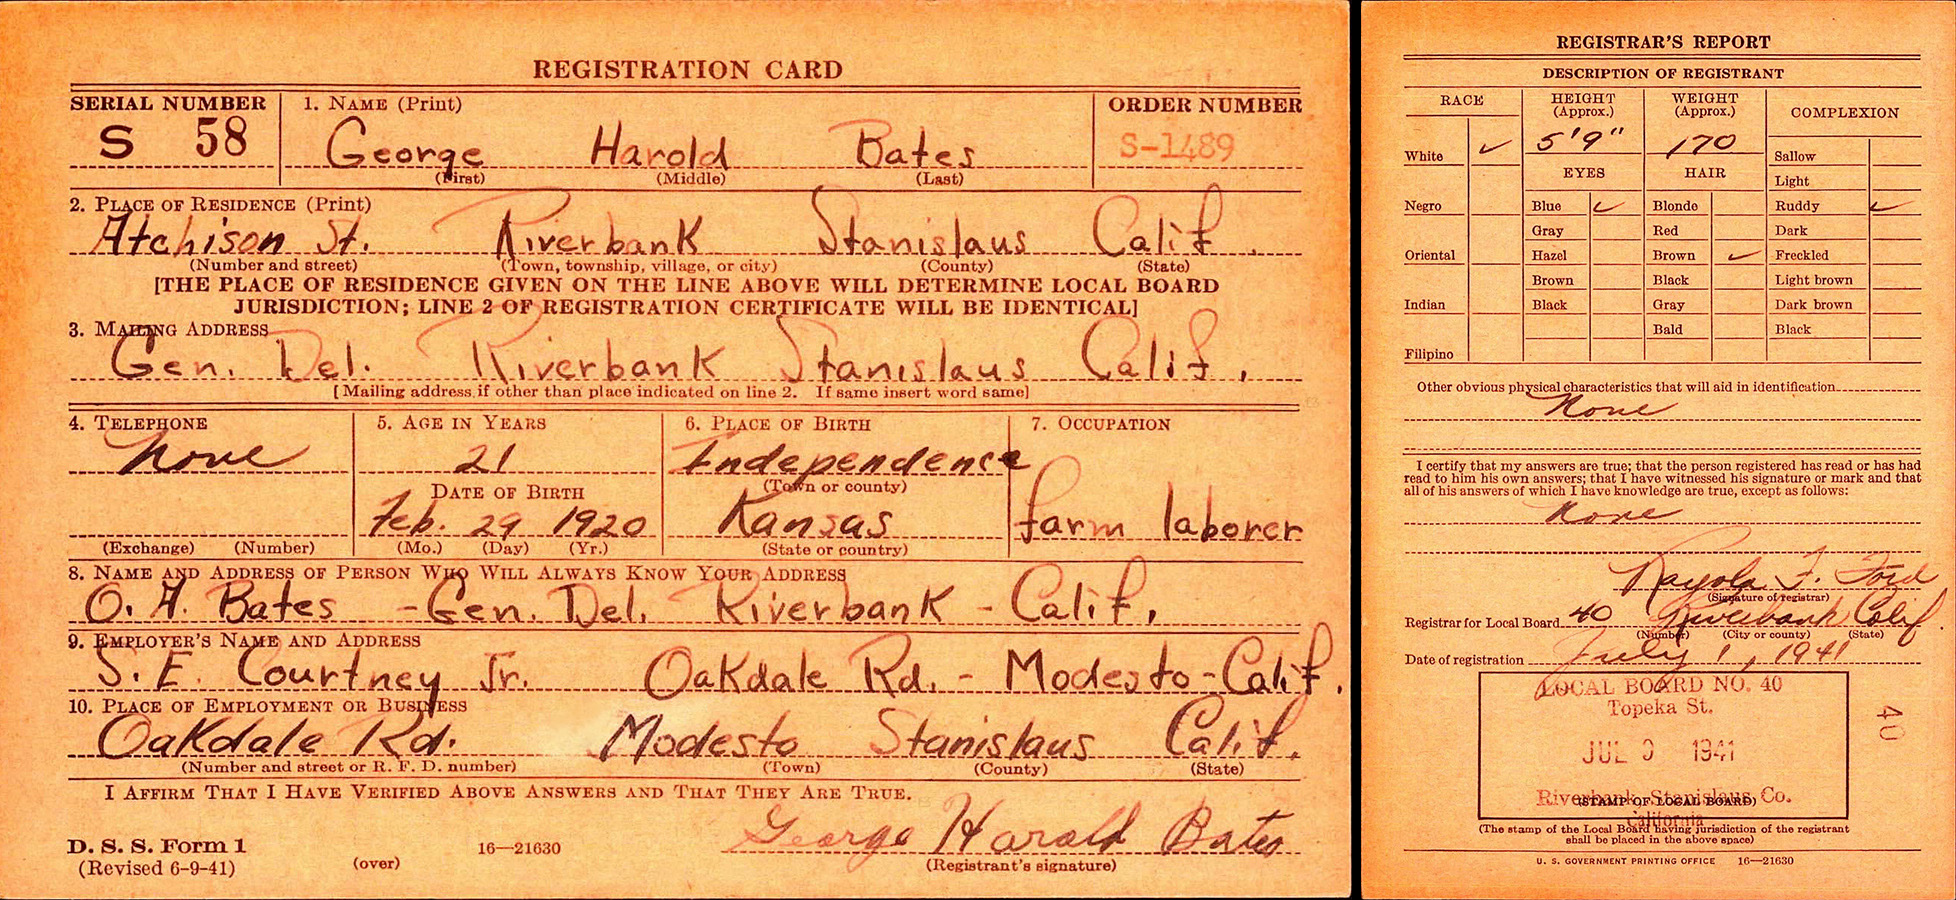 REGISTRATION CARD
SERIAL NUMBER
1. NAME (Print)
ORDER NUMBER
S 58
George Harold Bates
S-1489
(First) (Middle) (Last)
2. PLACE OF RESIDENCE (Print)
Atchison St. Riverbank Stanislaus Calif.
(Number and street) (Town, township, village, or city) (County) (State)
[THE PLACE OF RESIDENCE GIVEN ON THE LINE ABOVE WILL DETERMINE LOCAL BOARD
JURISDICTION; LINE 2 OF REGISTRATION CERTIFICATE WILL BE IDENTICAL]
3. MAILING ADDRESS
Gen. Del. Riverbank Stanislaus Calif.
[Mailing address if other than place indicated on line 2. If same insert word same]
4. TELEPHONE
None
(Exchange) (Number)
5. AGE IN YEARS
21
DATE OF BIRTH
Feb. 29 1920
(Mo.) (Day) (Yr.)
6. PLACE OF BIRTH
Independence
(Town or county)
Kansas
(State or country)
7. OCCUPATION
farm laborer
8. NAME AND ADDRESS OF PERSON WHO WILL ALWAYS KNOW YOUR ADDRESS
O. A. Bates - Gen. Del. Riverbank - Calif.
9. EMPLOYER'S NAME AND ADDRESS
S. E. Courtney Jr. Oakdale Rd. - Modesto - Calif.
10. PLACE OF EMPLOYMENT OR BUSINESS
Oakdale Rd. Modesto Stanislaus Calif.
(Number and street or R. F. D. number) (Town) (County) (State)
I AFFIRM THAT I HAVE VERIFIED ABOVE ANSWERS AND THAT THEY ARE TRUE.
George Harold Bates
D. S. S. Form 1
(Revised 6-9-41)
(over)
16—21630
(Registrant's signature)
REGISTRAR'S REPORT
DESCRIPTION OF REGISTRANT
RACE
White ✓
Negro
Oriental
Indian
Filipino
HEIGHT
(Approx.)
5'9"
EYES
Blue ✓
Gray
Hazel
Brown
Black
WEIGHT
(Approx.)
170
HAIR
Blonde
Red
Brown ✓
Black
Gray
Bald
COMPLEXION
Sallow
Light
Ruddy ✓
Dark
Freckled
Light brown
Dark brown
Black
Other obvious physical characteristics that will aid in identification
None
I certify that my answers are true; that the person registered has read or has had
read to him his own answers; that I have witnessed his signature or mark and that
all of his answers of which I have knowledge are true, except as follows:
None
F. Ford
(Signature of registrar)
Registrar for Local Board 40 Riverbank Calif
(Number) (City or county) (State)
Date of registration July 1, 1941
LOCAL BOARD NO. 40
Topeka St.
JUL 1941
Riverbank, Stanislaus Co.
(STAMP OF LOCAL BOARD)
California
40
(The stamp of the Local Board having jurisdiction of the registrant
shall be placed in the above space)
U. S. GOVERNMENT PRINTING OFFICE 16—21630